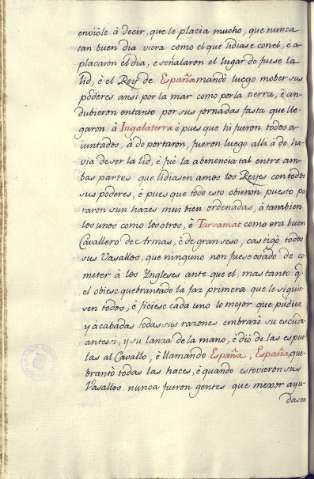 enviole à decir, que le placia mucho, que nunca
tan buen dia viera como el que lidiase con el, è a
placaron el dia, è señalaron el lugar do fuese la
lid, è el Rey de España mandò luego mober sus
poderes ansi por la mar como por la tierra, è an
dubieron en tanto por sus jornadas fasta que lle
garon à Ingalaterra è pues que hi fueron todos a
juntados, à do portaron, fueron luego alli à do ha
via de ser la lid, è fuè la abenencia tal entre am
bas partes que lidiasen amos los Reyes con todos
sus poderes, è pues que todo esto obieron puesto pa
raron sus hazes mui bien ordenadas, è tanabien
los unos como los otros, è Tarsamat como era buen
Cavallero de Armas, è de gran seso, castigò todos
sus Vasallos, que ninguno non fuese osado de co
meter à los Yngleses ante que el, mas tanto q.
el obiese quebrantado la faz primera que le siguie
sen todos, è ficiese cada uno lo mejor que pudiese
y acabadas todas sus razones embrazò su escudo
ante si, y su lanza de la mano, è diò de las espue
las al Cavallo, è llamando España, España, que
brantò todas las haces, è quando estovieron sus
Vasallos nunca fueron gentes que mexor ayu
dasen